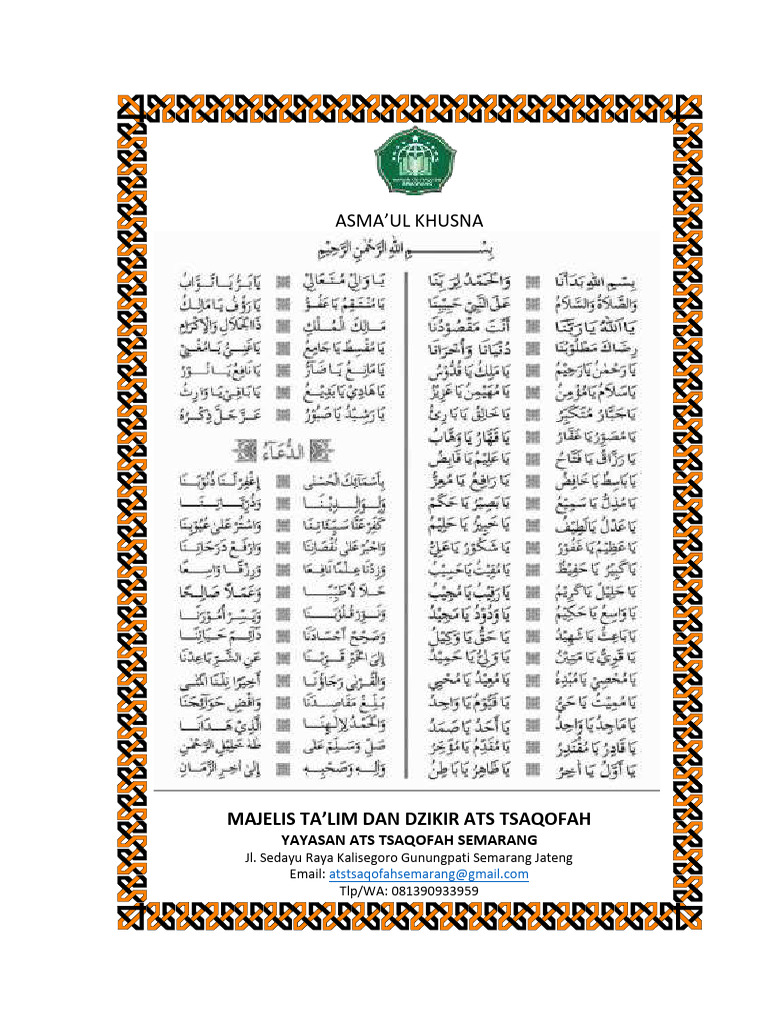 ASMA’UL KHUSNA
بِسْمِ اللهِ الرَّحْمٰنِ الرَّحِيْمِ
بِسْمِ اللهِ بَدَأْنَا وَالْحَمْدُ لِرَبِّنَا
وَالصَّلَاةُ وَالسَّلَامُ عَلَى النَّبِيِّ حَبِيْبِنَا
يَا اَللهُ يَا رَبَّنَا أَنْتَ مَقْصُوْدُنَا
رِضَاكَ مَطْلُوْبُنَا دُنْيَانَا وَأُخْرَانَا
يَا رَحْمٰنُ يَا رَحِيْمُ يَا مَلِكُ يَا قُدُّوْسُ
يَا سَلَامُ يَا مُؤْمِنُ يَا مُهَيْمِنُ يَا عَزِيْزُ
يَا جَبَّارُ مُتَكَبِّرُ يَا خَالِقُ يَا بَارِئُ
يَا مُصَوِّرُ يَا غَفَّارُ يَا قَهَّارُ يَا وَهَّابُ
يَا رَزَّاقُ يَا فَتَّاحُ يَا عَلِيْمُ يَا قَابِضُ
يَا بَاسِطُ يَا خَافِضُ يَا رَافِعُ يَا مُعِزُّ
يَا مُذِلُّ يَا سَمِيْعُ يَا بَصِيْرُ يَا حَكَمُ
يَا عَدْلُ يَا لَطِيْفُ يَا خَبِيْرُ يَا حَلِيْمُ
يَا عَظِيْمُ يَا غَفُوْرُ يَا شَكُوْرُ يَا عَلِيُّ
يَا كَبِيْرُ يَا حَفِيْظُ يَا مُقِيْتُ يَا حَسِيْبُ
يَا جَلِيْلُ يَا كَرِيْمُ يَا رَقِيْبُ يَا مُجِيْبُ
يَا وَاسِعُ يَا حَكِيْمُ يَا وَدُوْدُ يَا مَجِيْدُ
يَا بَاعِثُ يَا شَهِيْدُ يَا حَقُّ يَا وَكِيْلُ
يَا قَوِيُّ يَا مَتِيْنُ يَا وَلِيُّ يَا حَمِيْدُ
يَا مُحْصِيْ يَا مُبْدِئُ يَا مُعِيْدُ يَا مُحْيِيْ
يَا مُمِيْتُ يَا حَيُّ يَا قَيُّوْمُ يَا وَاجِدُ
يَا مَاجِدُ يَا وَاحِدُ يَا أَحَدُ يَا صَمَدُ
يَا قَادِرُ يَا مُقْتَدِرُ يَا مُقَدِّمُ يَا مُؤَخِّرُ
يَا أَوَّلُ يَا أٰخِرُ يَا ظَاهِرُ يَا بَاطِنُ
يَا وَالِيْ مُتَعَالِيْ يَا بَرُّ يَا تَوَّابُ
يَا مُنْتَقِمُ يَا عَفُوُّ يَا رَؤُفُ يَا مَالِكُ
مَالِكَ الْمُلْكِ ذَا الْجَلَالِ وَالْإِكْرَامِ
يَا مُقْسِطُ يَا جَامِعُ يَا غَنِيُّ يَا مُغْنِيْ
يَا مَانِعُ يَا ضَآرُّ يَا نَافِعُ يَا نُوْرُ
يَا هَادِيْ يَا بَدِيْعُ يَا بَاقِيْ يَا وَارِثُ
يَا رَشِيْدُ يَا صَبُوْرُ عَزَّ جَلَّ ذِكْرُهُ
الدُّعَاءُ
بِأَسْمَائِكَ الْحُسْنٰى إِغْفِرْ لَنَا ذُنُوْبَنَا
وَلِوَالِدِيْنَا وَذُرِّيَّاتِنَا
كَفِّرْ عَنَّا سَيِّئَاتِنَا وَاسْتُرْ عَلَى عُيُوْبِنَا
وَاجْبُرْ عَلَى نُقْصَانِنَا وَارْفَعْ دَرَجَاتِنَا
وَزِدْنَا عِلْمًا نَافِعًا وَرِزْقًا وَاسِعًا
حَلَالًا طَيِّبًا وَعَمَلًا صَالِحًا
وَنَوِّرْ قُلُوْبَنَا وَيَسِّرْ أُمُوْرَنَا
وَصَحِّحْ أَجْسَادَنَا دَائِمَ حَيَاتِنَا
إِلَى الْخَيْرِ قَرِّبْنَا عَنِ الشَّرِّ بَاعِدْنَا
وَالْقُرْبٰى رَجَاؤُنَا أَخِيْرًا نِلْنَا الْمُنٰى
بَلِّغْ مَقَاصِدَنَا وَاقْضِ حَوَائِجَنَا
وَالْحَمْدُ لِإِلٰهِنَا الَّذِيْ هَدَانَا
صَلِّ وَسَلِّمْ عَلَى طٰهٰ خَلِيْلِ الرَّحْمٰنِ
وَأٰلِهِ وَصَحْبِهِ إِلَى أٰخِرِ الزَّمَانِ
MAJELIS TA’LIM DAN DZIKIR ATS TSAQOFAH
YAYASAN ATS TSAQOFAH SEMARANG
Jl. Sedayu Raya Kalisegoro Gunungpati Semarang Jateng
Email: atstsaqofahsemarang@gmail.com
Tlp/WA: 081390933959